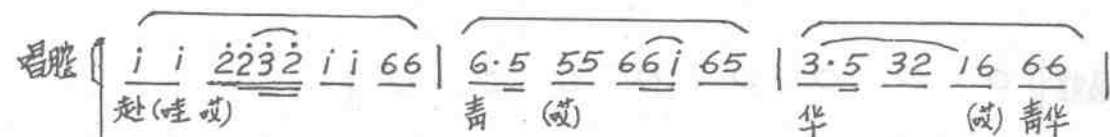 唱腔 i i 2̇2̇3̇2̇ i i 66 | 6·5 55 66i 65 | 3·5 32 16 66 |
赴(哇哎) 青 (哎) 华 (哎) 青华